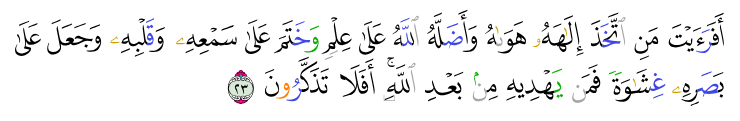 أَفَرَءَيْتَ مَنِ ٱتَّخَذَ إِلَٰهَهُۥ هَوَىٰهُ وَأَضَلَّهُ ٱللَّهُ عَلَىٰ عِلْمٍ وَخَتَمَ عَلَىٰ سَمْعِهِۦ وَقَلْبِهِۦ وَجَعَلَ عَلَىٰ
بَصَرِهِۦ غِشَٰوَةً فَمَن يَهْدِيهِ مِنۢ بَعْدِ ٱللَّهِ ۚ أَفَلَا تَذَكَّرُونَ ٢٣